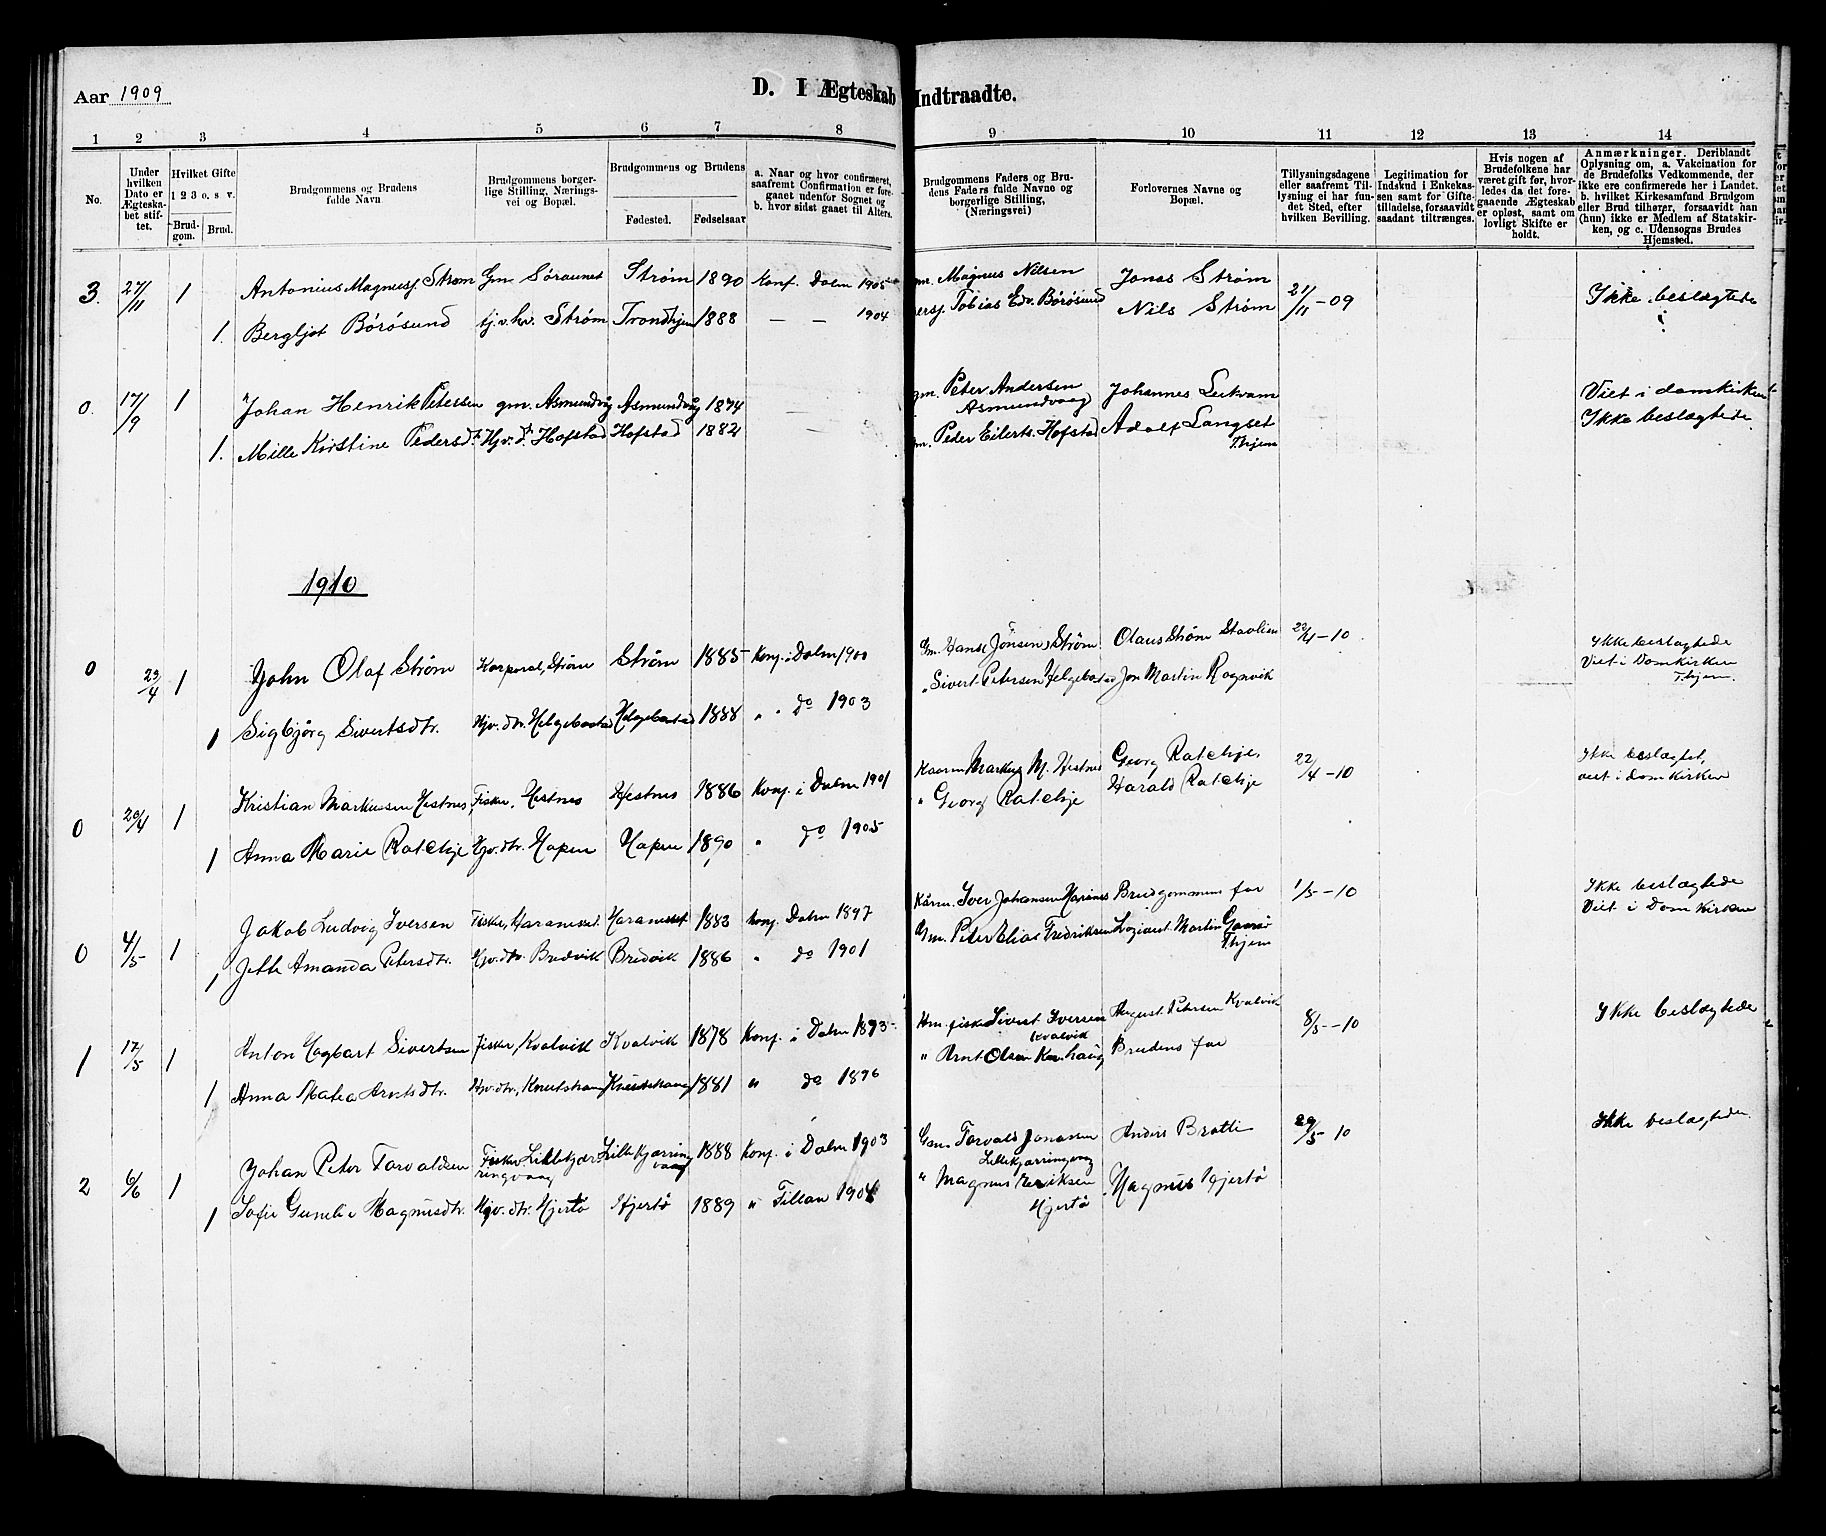 Aar 1909
D. I Ægteskab Indtraadte.
1 2 3 4 5 6 7 8 9 10 11 12 13 14
No.
Under hvilken Dato er Ægteskabet stiftet.
Hvilket Gifte
1 2 3 o. s v.
Brudgom. Brud.
Brudgommens og Brudens fulde Navn
Brudgommens borgerlige Stilling, Næringsvei og Bopæl.
Brudgommens og Brudens
Fødested. Fødselsaar
a. Naar og hvor confirmeret, saafremt Confirmation er foregaaet udenfor Sognet og b. hvor sidst gaaet til Alters.
Brudgommens Faders og Brudens Faders fulde Navne og borgerlige Stilling, (Næringsvei)
Forlovernes Navne og Bopæl.
Tillysningsdagene eller saafremt Tillysning ei har fundet Sted, efter hvilken Bevilling.
Legitimation for Indskud i Enkekassen samt for Giftetilladelse, forsaavidt saadant tiltrænges.
Hvis nogen af Brudefolkene har været gift før, hvorledes da det foregaaende Ægteskab er opløst, samt om lovligt Skifte er holdt.
Anmærkninger. Deriblandt Oplysning om, a. Vakcination for de Brudefolks Vedkommende, der ikke ere confirmerede her i Landet. b. hvilket Kirkesamfund Brudgom eller Brud tilhører, forsaavidt han (hun) ikke er Medlem af Statskirken, og c. Udensogns Brudes Hjemsted.
3. 27/11 1 Antonius Magnusj. Strøm Gm. Søraunet Strøm 1890 Konf. Dolm 1905 gm. Magnus Nilsen Jonas Strøm 21/11-09 Ikke beslægtede
1. Bergljot Börösund tj. v. hv. Strøm Trondhjem 1888 — — 1904 Tobias Edv. Börösund Nils Strøm
0. 17/9 1 Johan Henrik Petersen gm. Asmundvåg Asmundvåg 1874 — gm. Peter Andersen Asmundvaag Johannes Leikvam Viet i domkirken
1. Mille Kirstine Pedersd. Hjv. d. Hofstad Hofstad 1882 gm. Peder Eilerts. Hofstad Adolf Langset T.hjem Ikke beslægtede
1910
0 23/4 1 John Olaf Strøm Korporal, Strøm Strøm 1885 Konf. i Dolm 1900 Gm. Hans Jönsen Strøm Olaus Strøm Stavlien 22/4-10 Ikke beslægtede Viet i Domkirken T.hjem.
1 Sigbjørg Sivertsdtr. Hjv. dtr. Helgebostad Helgebostad 1888 " " do 1903 " Sivert Petersen Helgebostad Jon Martin Ragnvik
0 20/4 1 Kristian Markussen Hestnes, Fisker, Hestnes Hestnes 1886 Konf. i Dolm 1901 Kaarm Markus M. Hestnes Georg Ratchje. 22/4-10 Ikke beslægtet, viet i domkirken
1 Anna Marie Ratchje Hjv. dtr. Hopen Hopen 1890 " do 1905 " Georg Ratchje Harald Ratchje
0 4/5 1 Jakob Ludvig Iversen Fisker, Haramsset Haramsset 1883 Konf. Dolm 1897 Kårm. Iver Johansen Brudgommens far 1/5-10 Ikke beslægtede Viet i Domkirken
1 Jette Amanda Petersdtr. Hjv. dtr. Bredvik Bredvik 1886 " do 1901 Gm. Peter Elias Fredriksen Martin T.hjem
1 17/5 1 Anton Hagbart Sivertsen Fisker, Kvalvik Kvalvik 1878 Konf. i Dolm 1893 Hm. fisker Sivert Iversen Kvalvik August Petersen Kvalvik 8/5-10 Ikke beslægtede
1 Anna Matea Arntsdtr. Hjv. dtr, Knutshaug Knutshaug 1881 " do 1896 " Arnt Olsen Knuhaug Brudens far
2 6/6 1 Johan Peter Torvaldsen Fisker Lillekjærringvaag Lillekjærringvaag 1888 Konf. i Dolm 1903 Gm. Torvald Jonassen Lillekjærringvaag Anders Bratti 29/5-10 Ikke beslægtede
1 Sofie Gunelie Magnusdtr. Hjv. dtr. Hjertö Hjertö 1889 " Fillan 1904 " Magnus Henriksen Hjertö Magnus Hjertö